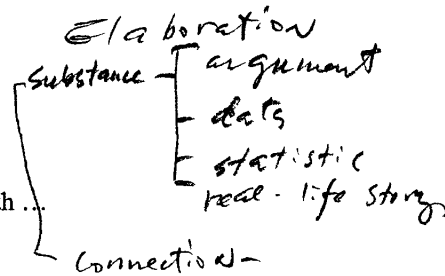 Elaboration
substance - argument
- data
- statistic
real-life story
th ...
connection -